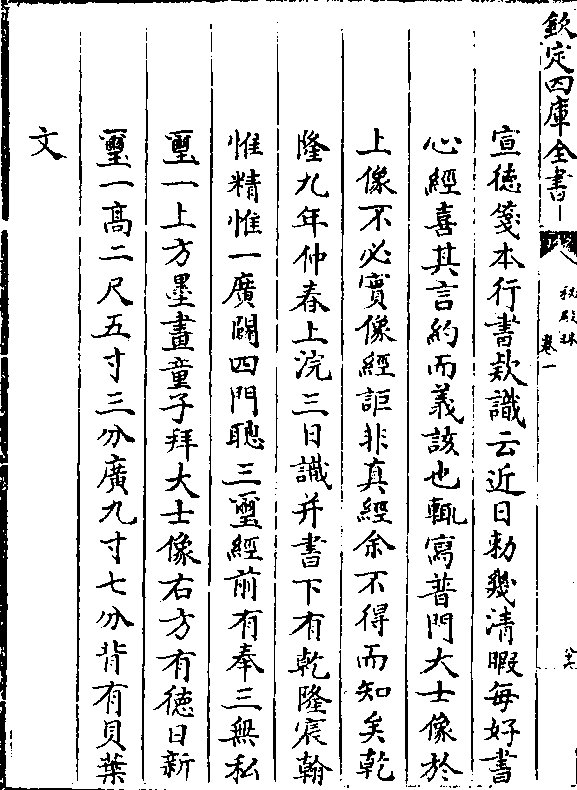 欽定四庫全書
秘殿珠
卷一
宣徳箋本行書欵識云近日勅幾清暇每好書
心經喜其言約而義該也輒寫普門大士像於
上像不必實像經詎非真經余不得而知矣乾
隆九年仲春上浣三日識并書下有乾隆宸翰
惟精惟一廣闢四門聰三璽經前有奉三無私
璽一上方墨畫童子拜大士像右方有徳日新
璽一高二尺五寸三分廣九寸七分背有貝葉
文